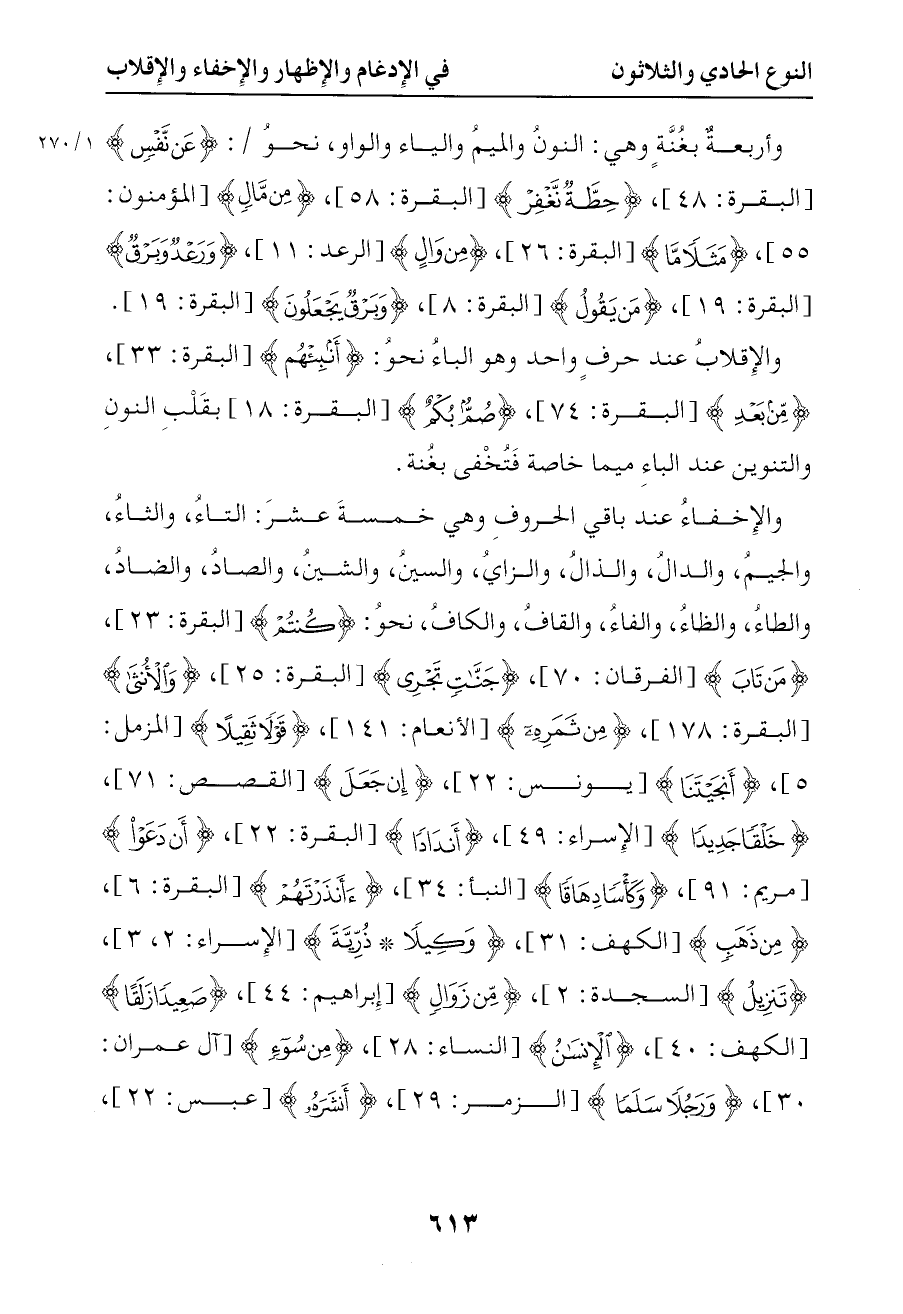 النوع الحادي والثلاثون في الإدغام والإظهار والإخفاء والإقلاب
وأربعةٌ بغُنَّةٍ وهي: النونُ والميمُ والياء والواو، نحوُ /: ﴿عَن نَّفْسٍ﴾ ٢٧٠/١
[البقرة: ٤٨]، ﴿حِطَّةٌ نَّغْفِرْ﴾ [البقرة: ٥٨]، ﴿مِن مَّالٍ﴾ [المؤمنون:
٥٥]، ﴿مَثَلًا مَّا﴾ [البقرة: ٢٦]، ﴿مِن وَالٍ﴾ [الرعد: ١١]، ﴿وَرَعْدٌ وَبَرْقٌ﴾
[البقرة: ١٩]، ﴿مَن يَقُولُ﴾ [البقرة: ٨]، ﴿وَبَرْقٌ يَجْعَلُونَ﴾ [البقرة: ١٩].
والإقلابُ عند حرفٍ واحد وهو الباءُ نحوُ: ﴿أَنۢبِئْهُم﴾ [البقرة: ٣٣]،
﴿مِّنۢ بَعْدِ﴾ [البقرة: ٧٤]، ﴿صُمٌّۢ بُكْمٌ﴾ [البقرة: ١٨] بقَلْبِ النونِ
والتنوين عند الباءِ ميما خاصة فَتُخْفى بغُنة.
والإخفاءُ عند باقي الحروفِ وهي خمسةَ عشرَ: التاءُ، والثاءُ،
والجيمُ، والدالُ، والذالُ، والزايُ، والسينُ، والشينُ، والصادُ، والضادُ،
والطاءُ، والظاءُ، والفاءُ، والقافُ، والكافُ، نحوُ: ﴿كُنتُمْ﴾ [البقرة: ٢٣]،
﴿مَن تَابَ﴾ [الفرقان: ٧٠]، ﴿جَنَّاتٍ تَجْرِى﴾ [البقرة: ٢٥]، ﴿وَٱلْأُنثَىٰ﴾
[البقرة: ١٧٨]، ﴿مِن ثَمَرِهِۦٓ﴾ [الأنعام: ١٤١]، ﴿قَوْلًا ثَقِيلًا﴾ [المزمل:
٥]، ﴿أَنجَيْتَنَا﴾ [يونس: ٢٢]، ﴿إِن جَعَلَ﴾ [القصص: ٧١]،
﴿خَلْقًا جَدِيدًا﴾ [الإسراء: ٤٩]، ﴿أَندَادًا﴾ [البقرة: ٢٢]، ﴿أَن دَعَوْا۟﴾
[مريم: ٩١]، ﴿وَكَأْسًا دِهَاقًا﴾ [النبأ: ٣٤]، ﴿ءَأَنذَرْتَهُمْ﴾ [البقرة: ٦]،
﴿مِن ذَهَبٍ﴾ [الكهف: ٣١]، ﴿وَكِيلًا * ذُرِّيَّةَ﴾ [الإسراء: ٢، ٣]،
﴿تَنزِيلُ﴾ [السجدة: ٢]، ﴿مِّن زَوَالٍ﴾ [إبراهيم: ٤٤]، ﴿صَعِيدًا زَلَقًا﴾
[الكهف: ٤٠]، ﴿ٱلْإِنسَٰنُ﴾ [النساء: ٢٨]، ﴿مِن سُوٓءٍ﴾ [آل عمران:
٣٠]، ﴿وَرَجُلًا سَلَمًا﴾ [الزمر: ٢٩]، ﴿أَنشَرَهُۥ﴾ [عبس: ٢٢]،
٦١٣